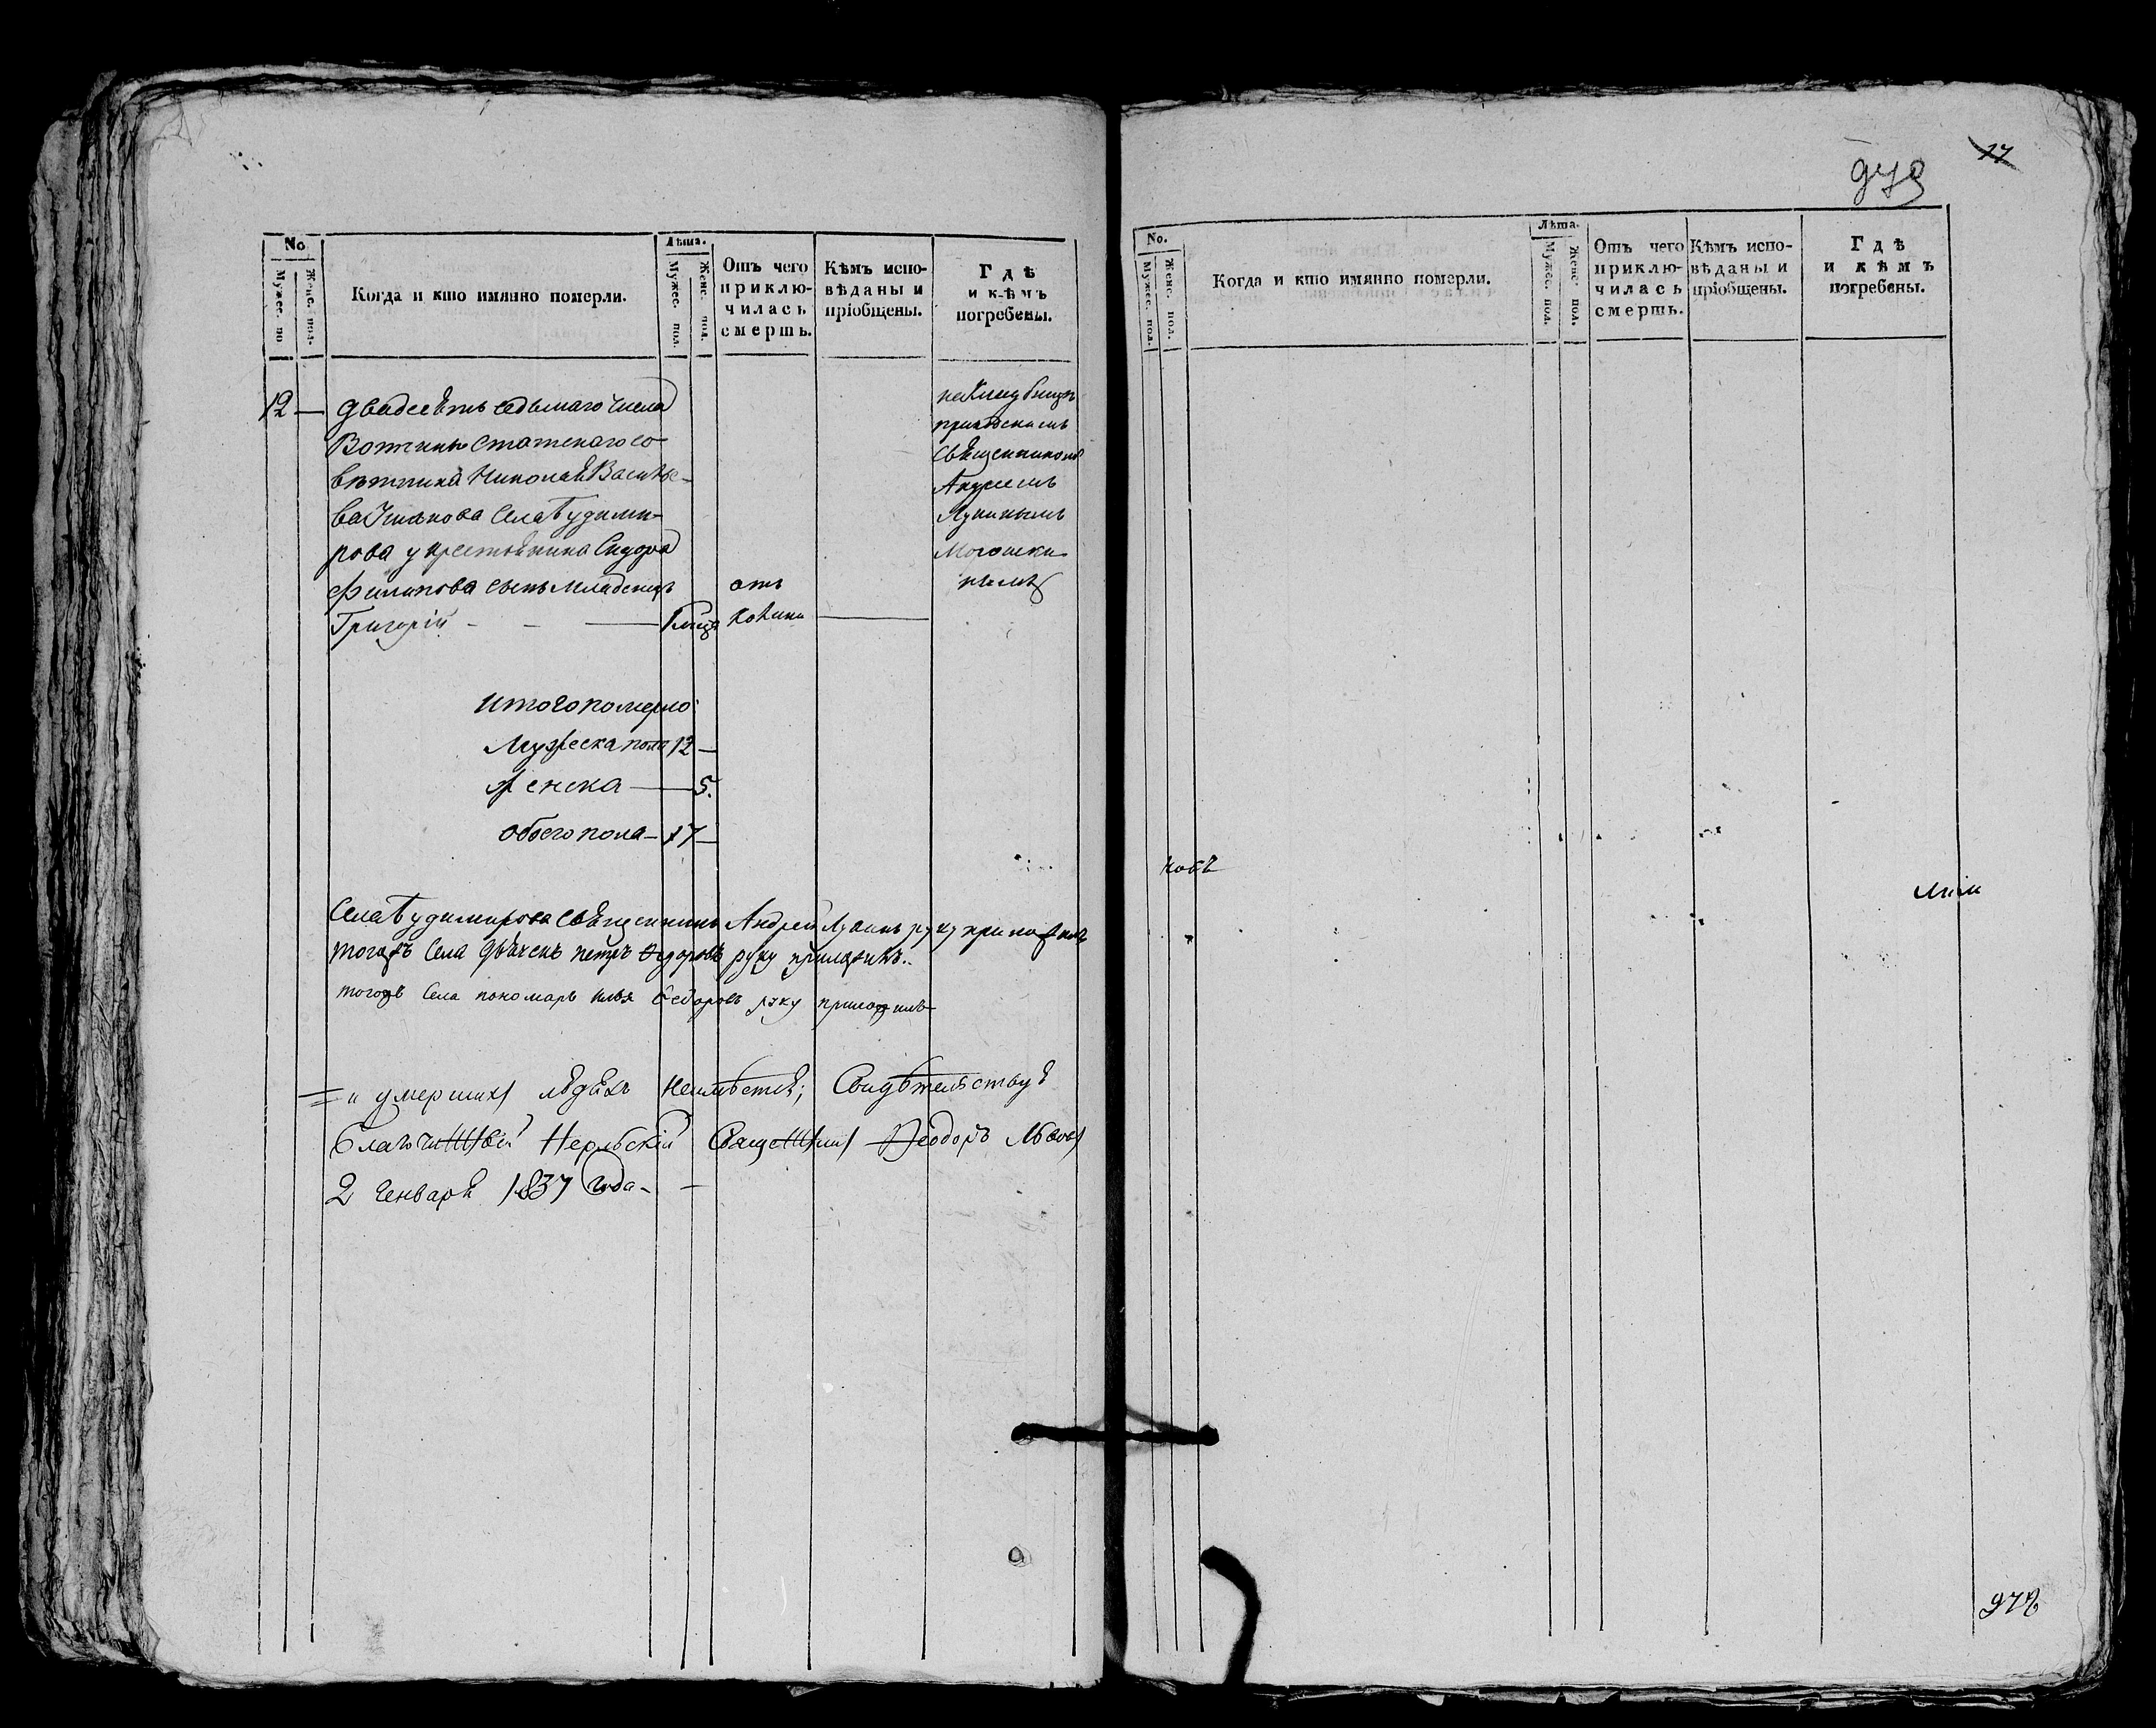 No
Мужес. по
Женс. пол.
Когда и кто имянно померли.
Лѣта.
Мужес. пол.
Женс. пол.
Отъ чего приклю-чилась смерть.
Кѣмъ испо-вѣданы и пріобщены.
Гдѣ и кѣмъ погребены.
12 — двадсѣть седьмаго числа
Вотчины Статскаго со-
вѣтника Николая Василье-
ва села Будими-
рова у крестьянина Сидора
Филипова сынъ младенецъ
Григорій — 1 мѣц
отъ
на кладбищѣ
приходскимъ
Священникомъ
Андреемъ
Лукинымъ
итого померло
Мужеска пола 12 —
Женска — 5.
обоего пола — 17 —
Села Будимирова священникъ Андрей Лукинъ руку приложилъ
тогожъ Села дьячекъ петръ руку приложилъ.
тогожъ Села пономарь илья Федоровъ руку приложилъ
и умершихъ Свидѣтельствуя
Благочинный Нерльскій Священникъ Феодоръ Львовъ
2 Генваря 1837 года —
17
979
No.
Мужес. пол.
Женс. пол.
Когда и кто имянно померли.
Лѣта.
Мужес. пол.
Женс. пол.
Отъ чего приклю-чилась смерть.
Кѣмъ испо-вѣданы и пріобщены.
Гдѣ и кѣмъ погребены.